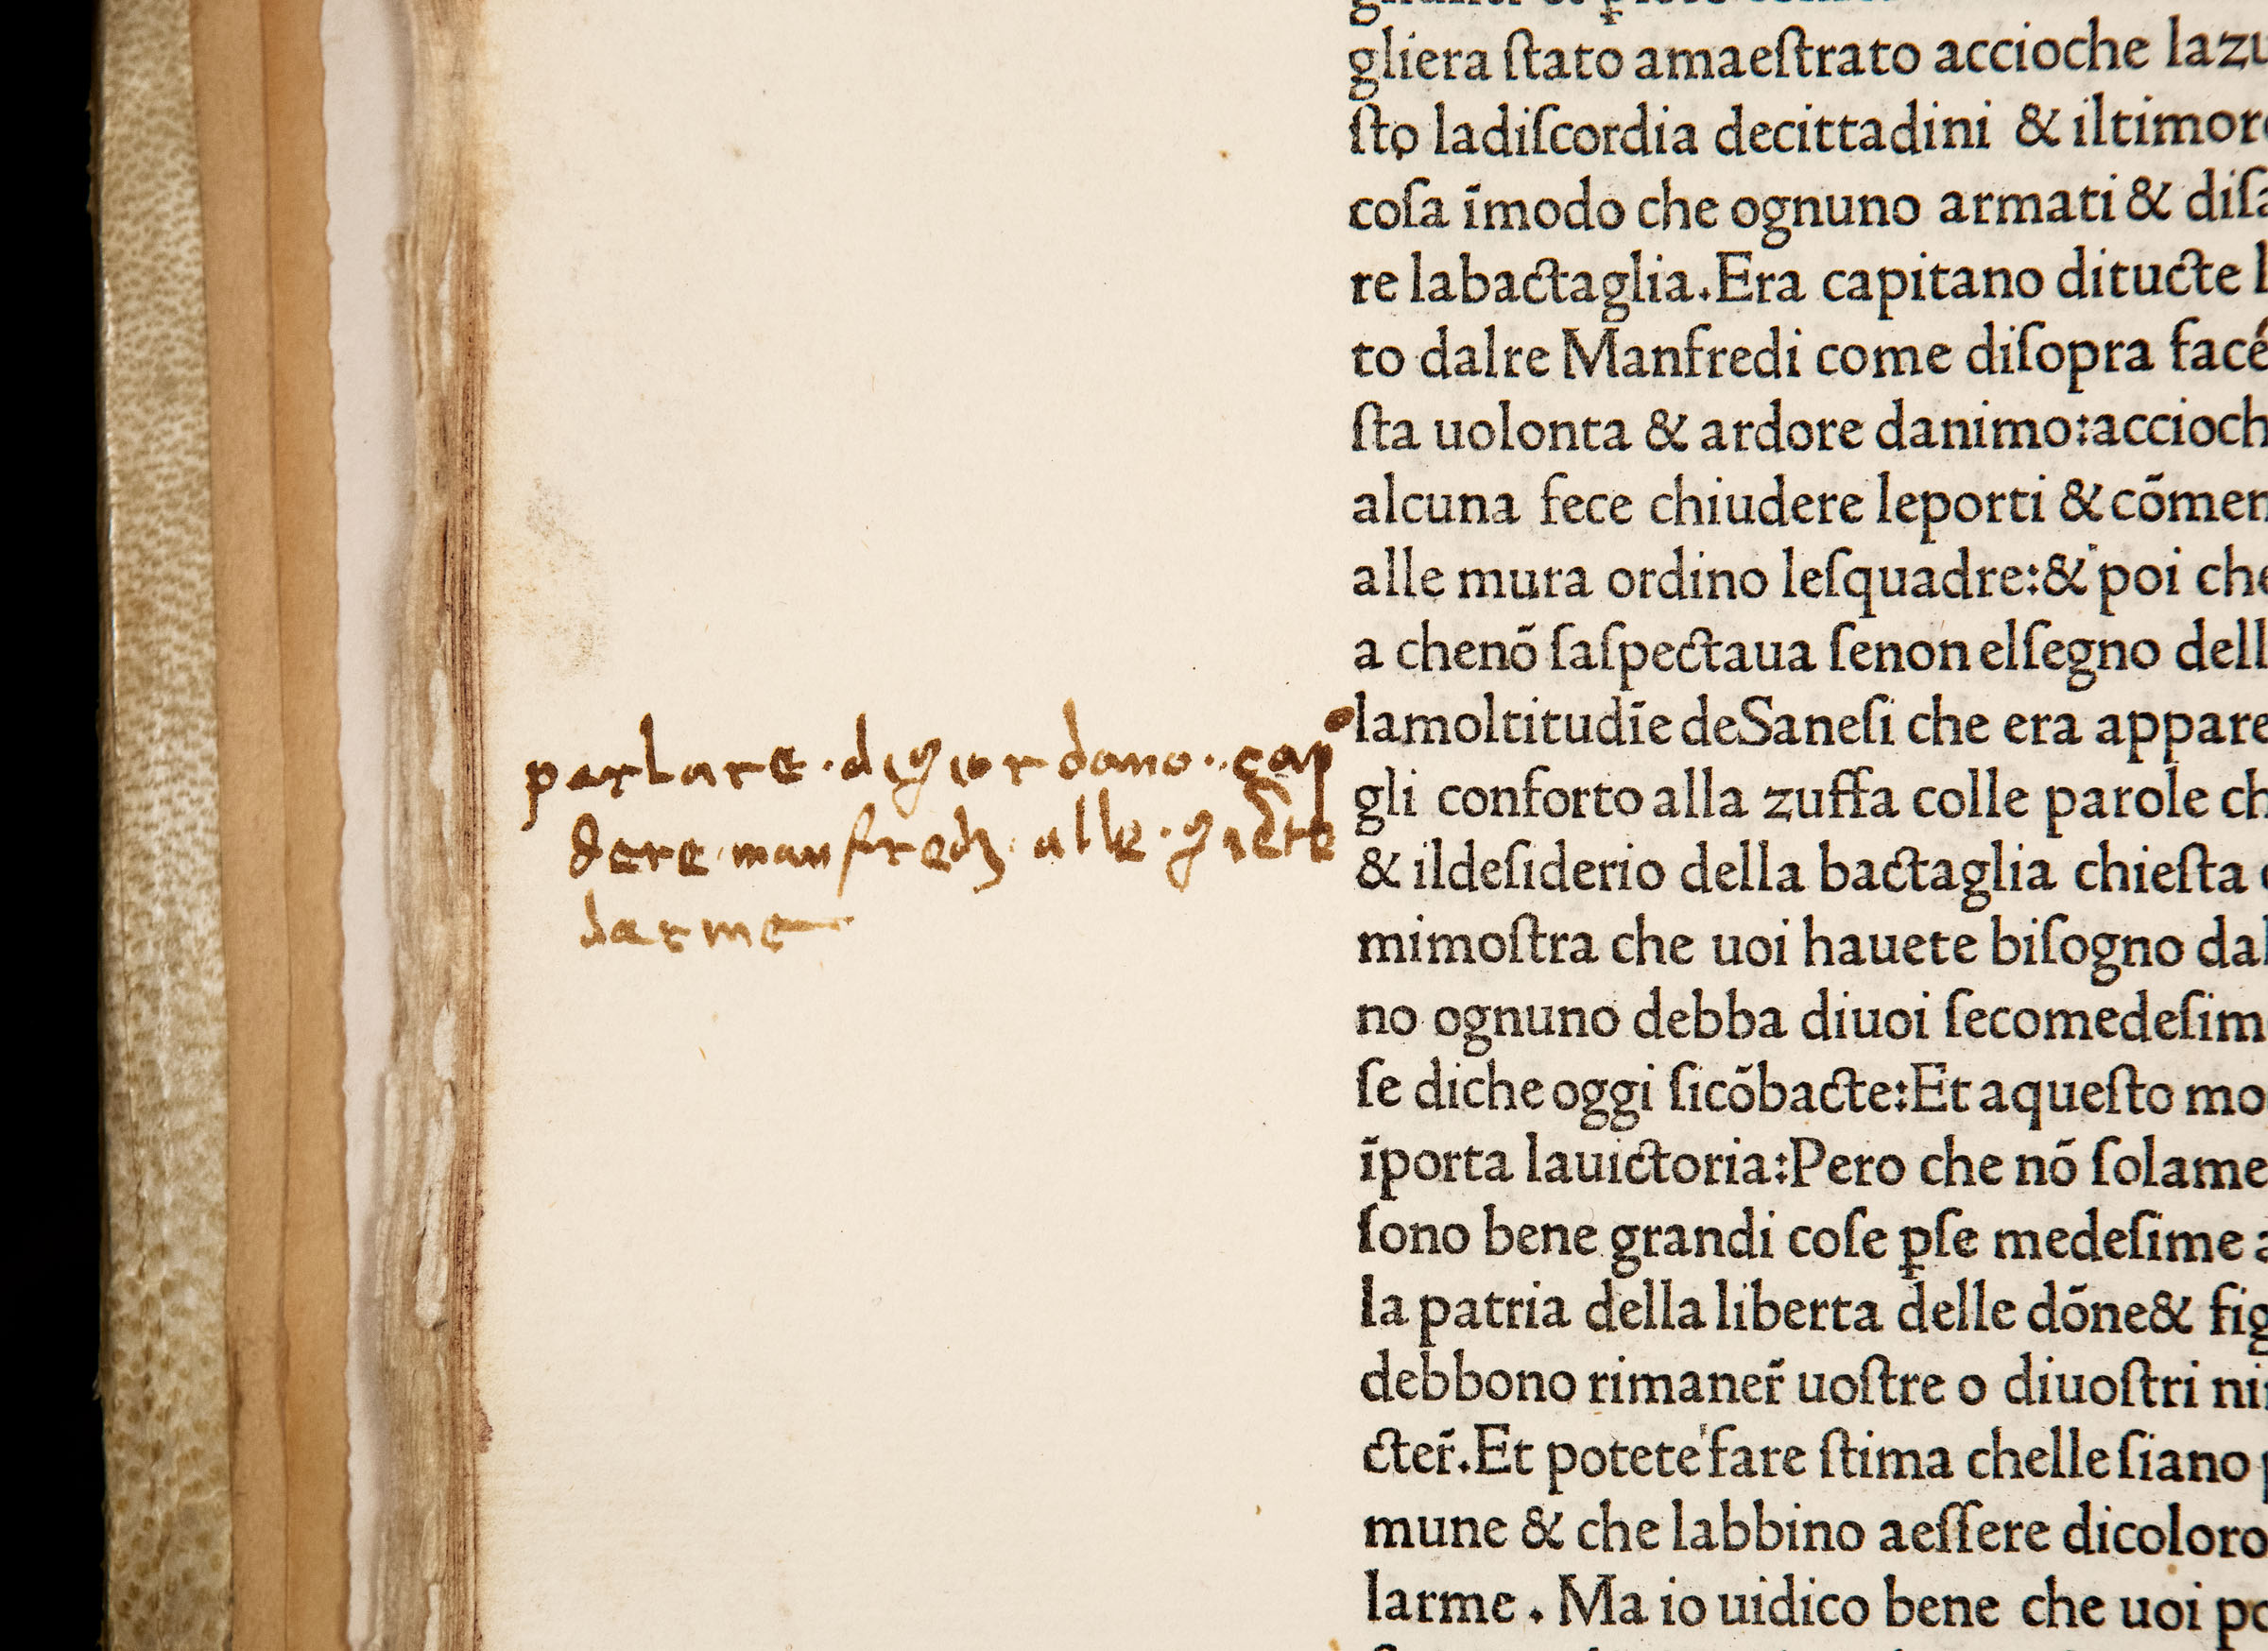 gliera ſtato amaeſtrato accioche lazu
ſto ladiſcordia decittadini & iltimor
coſa īmodo che ognuno armati & diſa
re labactaglia.Era capitano ditucte l
to dalre Manfredi come diſopra facé
ſta uolonta & ardore danimo:accioch
alcuna fece chiudere leporti & cōmen
alle mura ordino leſquadre:& poi che
a chenō ſaſpectaua ſenon elſegno dell
lamoltitudīe deSaneſi che era appare
gli conforto alla zuffa colle parole ch
& ildeſiderio della bactaglia chieſta
mimoſtra che uoi hauete biſogno dal
no ognuno debba diuoi ſecomedeſim
ſe diche oggi ſicōbacte:Et aqueſto mo
īporta lauictoria:Pero che nō ſolame
ſono bene grandi coſe ꝑſe medeſime a
la patria della liberta delle dōne& fig
debbono rimaner̄ uoſtre o diuoſtri ni
cter̄.Et potete fare ſtima chelle ſiano
mune & che labbino aeſſere dicoloro
larme . Ma io uidico bene che uoi po
parlare · digiordano · cap
dere manfredi alle · giēte
darme